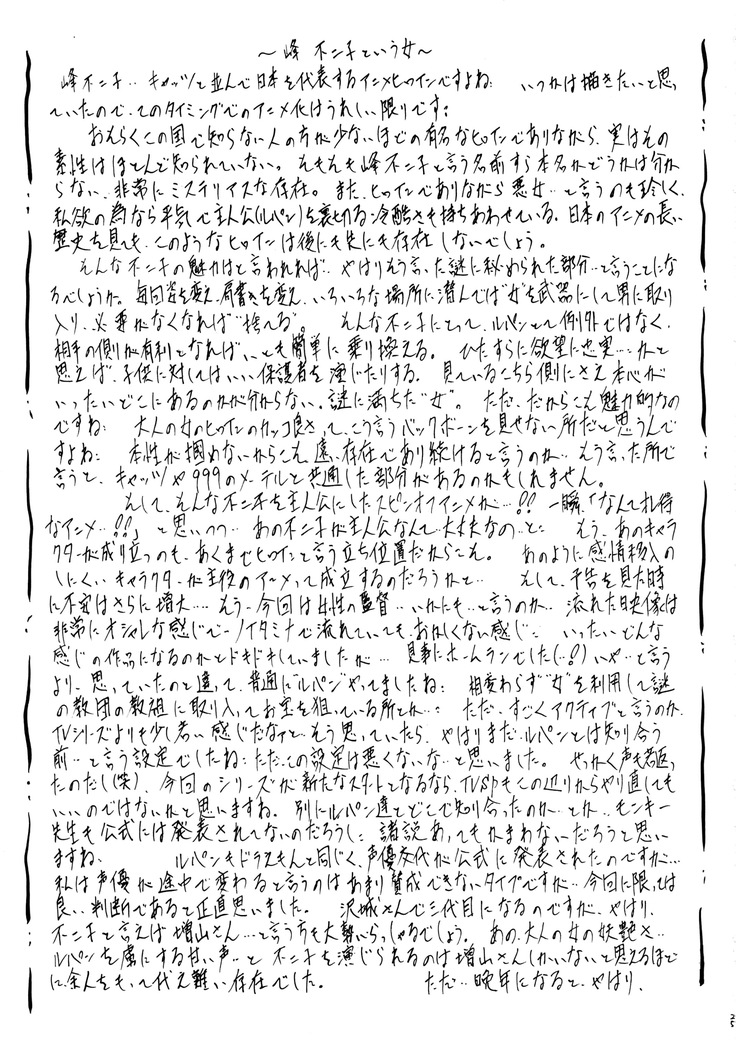 ～峰 不二子という女～
峰不二子‥キャッツと並んで日本を代表するアニメヒロインですよね： いつかは描きたいと思っ
ていたので、このタイミングでのアニメ化はうれしい限りです：
おそらくこの国で知らない人の方が少ないほどの有名なヒロインでありながら、実はその
素性はほとんど知られていない。そもそも峰不二子と言う名前すら本名かどうかは分か
らない、非常にミステリアスな存在。また、ヒロインでありながら悪女‥と言うのも珍しく、
私欲の為なら平気で主人公(ルパン)を裏切る冷酷さも持ちあわせている。日本のアニメの長い
歴史を見ても、このようなヒロインは後にも先にも存在しないでしょう。
そんな不二子の魅力はと言われれば‥やはりそう言った謎に秘められた部分‥と言うことにな
るでしょうか。毎回姿を変え、肩書きを変え、いろいろな場所に潜んでは“女”を武器にして男に取り
入り、必要がなくなれば“捨てる”。 そんな不二子にとって、ルパンとて例外ではなく、
相手の側が有利となれば、いとも簡単に乗り換える。 ひたすらに欲望に忠実…かと
思えば、子供に対してはいい保護者を演じたりする。 見ているこちら側にさえ本心が
いったいどこにあるのかが分からない、謎に満ちた“女”。 ただ、だからこそ魅力的なの
ですね： 大人の女のヒロインのカッコ良さって、こう言うバックボーンを見せない所だと思うんで
すよね： 本性が掴めないからこそ、遠い存在であり続けると言うのか‥そう言った所で
言うと、キャッツや999のメーテルと共通した部分があるのかもしれません。
そして、そんな不二子を主人公にしたスピンオフアニメが…!! 一瞬、「なんてオレ得
なアニメ…!!」と思いつつ‥あの不二子が主人公なんて‥大丈夫なの‥と： もう、あのキャラ
クターが成り立つのも、あくまでヒロインと言う立ち位置だからこそ。 あのように感情移入の
しにくいキャラクターが主役のアニメって成立するのだろうかと‥ そして、予告を見た時
に不安はさらに増大‥‥もう‥今回は女性の監督‥いかにも‥と言うのか‥流れた映像は
非常にオシャレな感じで‥ノイタミナで流れていても、おかしくない感じ： いったいどんな
感じの作品になるのかとドキドキしていましたが… 見事にホームランでした(…!)いや‥と言う
より、思っていたのと違って、普通に“ルパン”やってましたね： 相変わらず“女”を利用して謎
の教団の教祖に取り入ってお宝を狙っている所とか‥： ただ、すごくアクティブと言うのか、
TVシリーズよりも少し若い感じだなァと‥そう思っていたら、やはりまだルパンとは知り合う
前‥と言う設定でしたね：ただ、この設定は悪くないな‥と思いました。 せっかく声も若返っ
たのだし(笑)、今回のシリーズが新たなスタートとなるなら、TVSPもこの辺りからやり直しても
いいのではないかと思いますね。別にルパン達とどこで知り合ったのか‥とか、モンキー
先生も公式には発表されてないのだろうし： 諸説あってもかまわないだろうと思い
ますね、 ルパンもドラえもんと同じく、声優交代が公式に発表されたのですが…
私は声優が途中で変わると言うのはあまり賛成できないタイプですが‥今回に限っては
良い判断であると正直思いました。 沢城さんで三代目になるのですが、やはり、
不二子と言えば増山さん…と言う方も大勢いらっしゃるでしょう。あの、大人の女の妖艶さ‥
ルパンを虜にする甘い声‥と 不二子を演じられるのは増山さんしかいないと思えるほど
に、余人をもって代え難い存在でした。 ただ‥晩年になると、やはり、
25